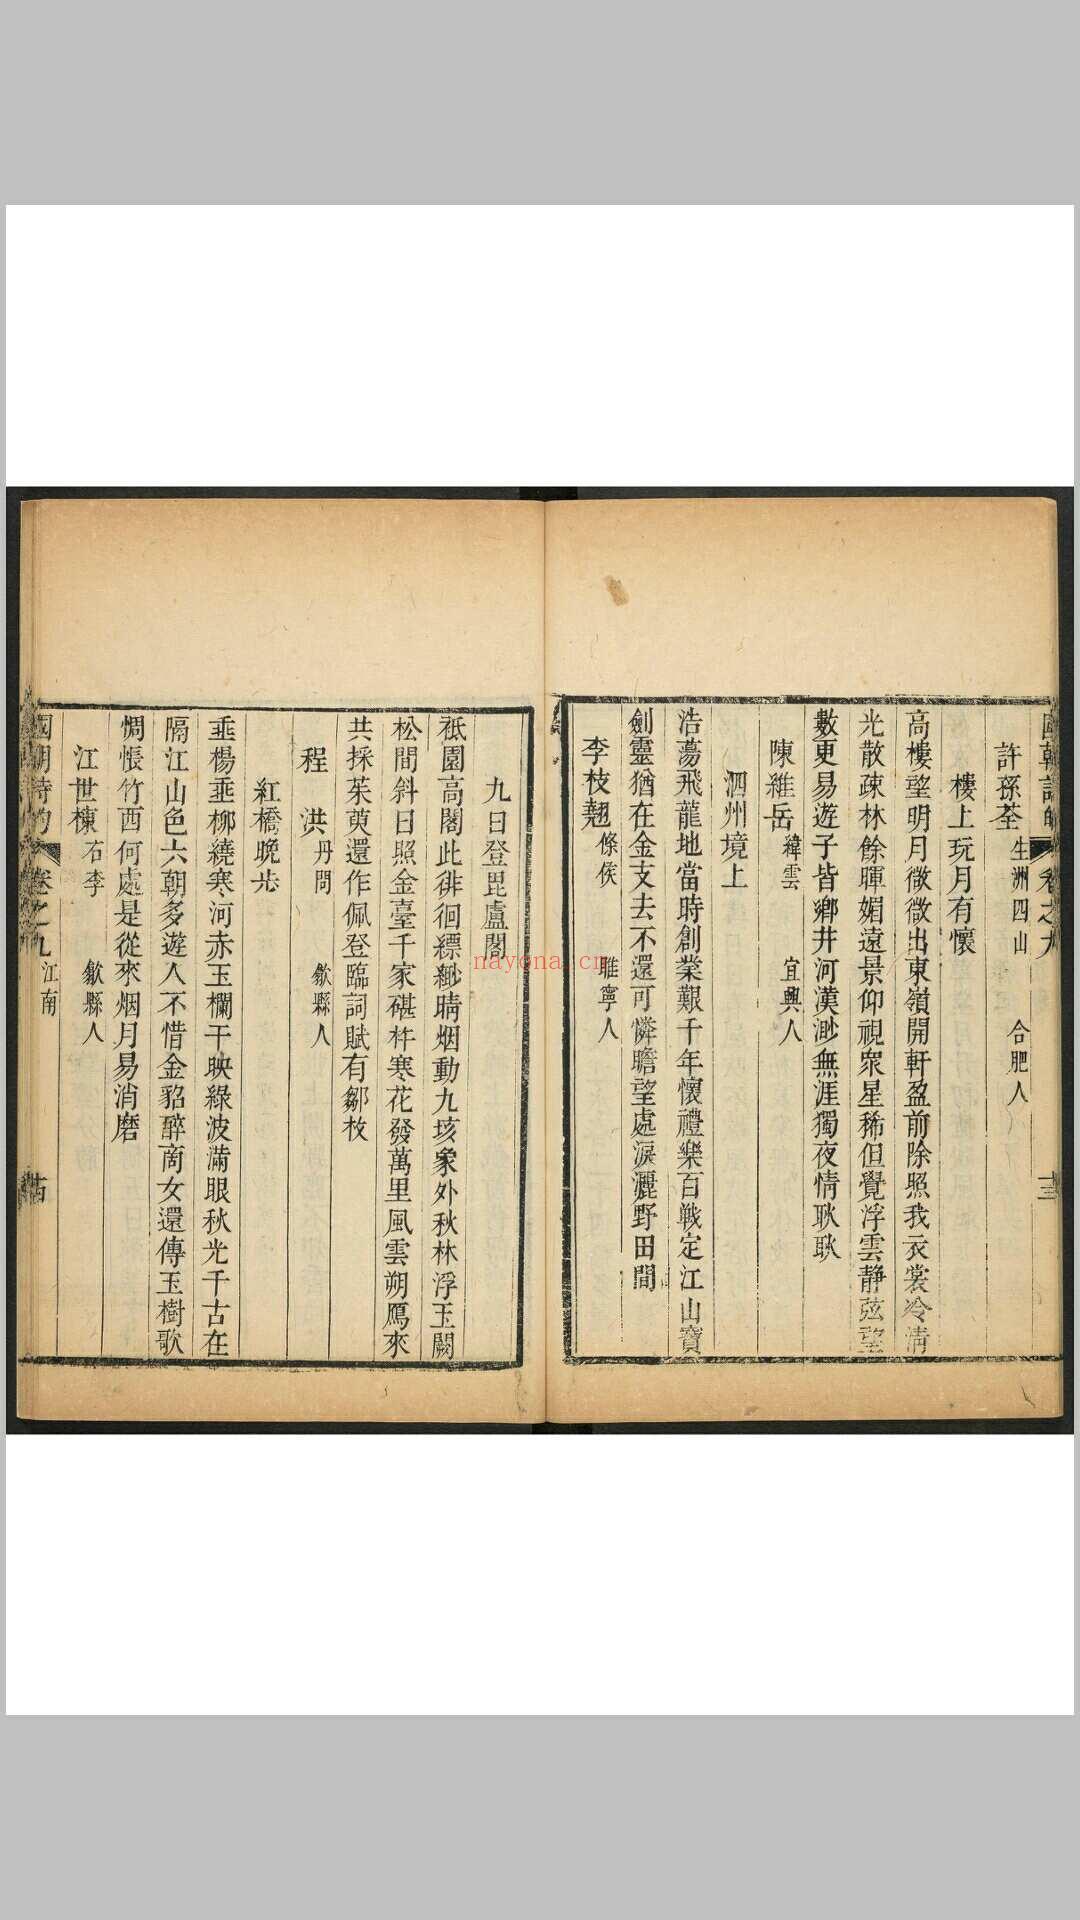 許孫荃 生洲四山 合肥人
樓上玩月有懷
高樓望明月徵徵出東嶺開軒盈前除照我衣裳冷清
光散疎林餘暉媚遠景仰視眾星稀但覺浮雲靜弦望
數更易遊子皆鄉井河漢渺無涯獨夜情耿耿
陳維岳 緯雲 宜興人
泗州境上
浩蕩飛龍地當時創業艱千年懷禮樂百戰定江山寶
劍靈猶在金支去不還可憐瞻望處淚灑野田間
李枝翹 條侯 睢寧人
九日登毘盧閣
祗園高閣此徘徊縹緲晴烟動九垓象外秋林浮玉闕
松間斜日照金臺千家碪杵寒花發萬里風雲朔鴈來
共採茱萸還作佩登臨詞賦有鄒枚
程洪 丹問 歙縣人
紅橋晚步
垂楊垂柳繞寒河赤玉欄干映綠波滿眼秋光千古在
隔江山色六朝多遊人不惜金貂醉商女還傳玉樹歌
惆悵竹西何處是從來烟月易消磨
江世棟 右李 歙縣人
國朝詩的 卷之九 江南
nayona.cn